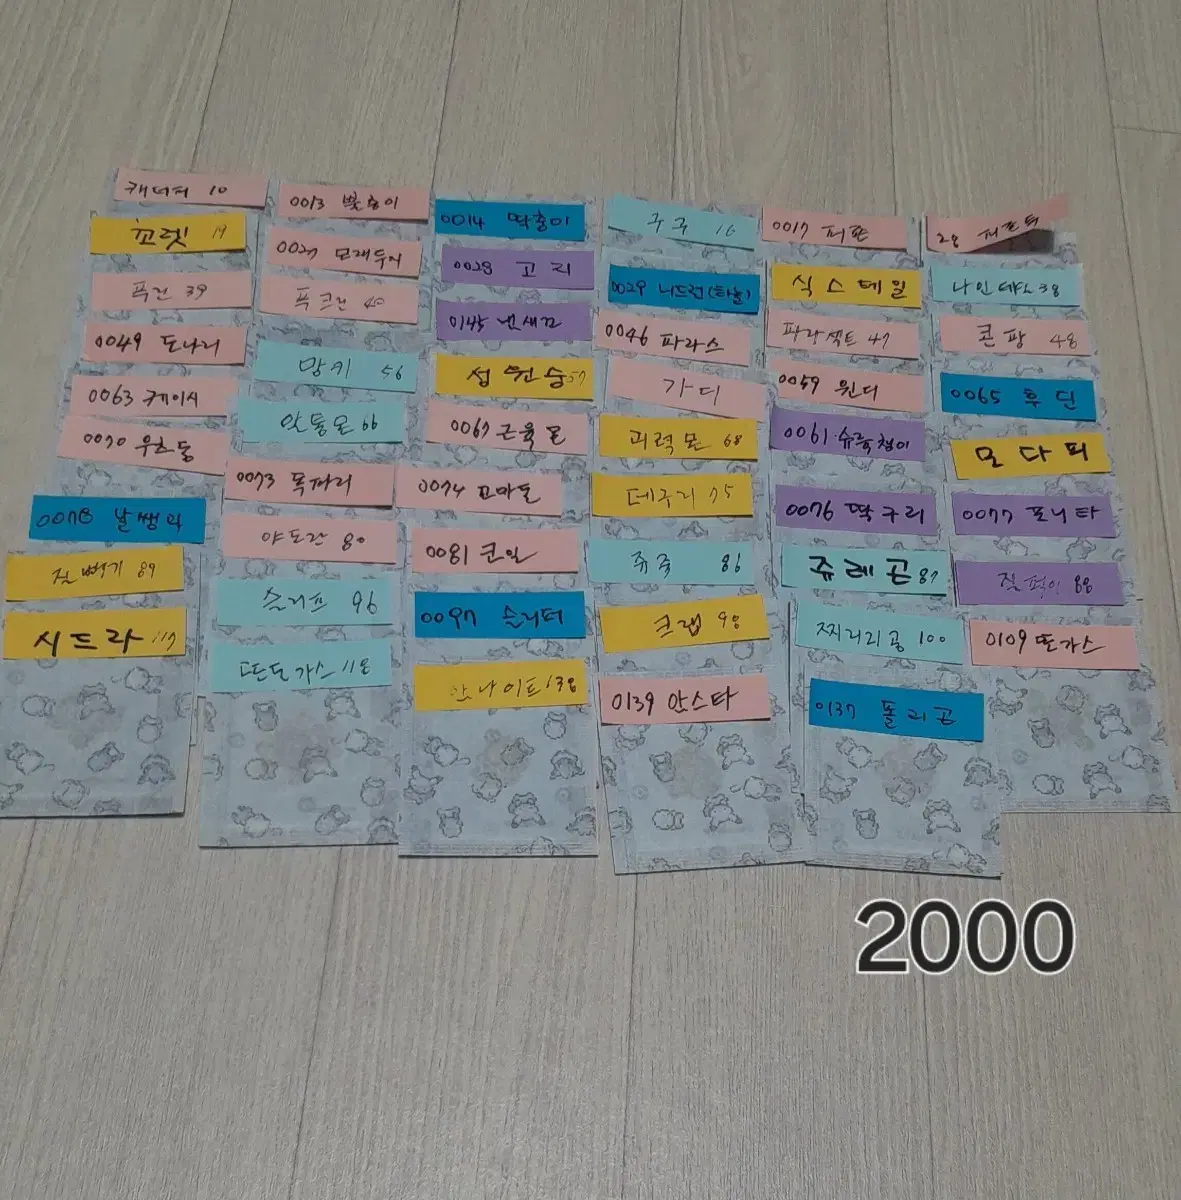 캐터피 10
0013 뿔충이
0014 딱충이
구구 16
0017 피죤
28 저트
꼬렛 19
0027 모래두지
0028 고지
0029 니드런(하늘)
식스테일
나인테일 38
푸린 39
푸크린 40
0145 냄새꼬
0046 파라스
파라섹트 47
콘팡 48
0049 도나리
망키 56
성원숭 57
가디
0059 윈디
0065 후딘
0063 케이시
알통몬 66
0067 근육몬
괴력몬 68
0061 슈륙챙이
모다피
0070 우츠동
0073 독파리
0074 꼬마돌
데구리 75
0076 딱구리
0077 포니타
0078 날쌩마
야도란 80
0081 코일
쥬쥬 86
쥬레곤 87
질퍽이 88
질뻐기 89
슬리프 96
0097 슬리퍼
크랩 98
찌리리공 100
0109 또가스
시드라 117
또도가스 118
암나이트 138
0139 암스타
0137 폴리곤
2000